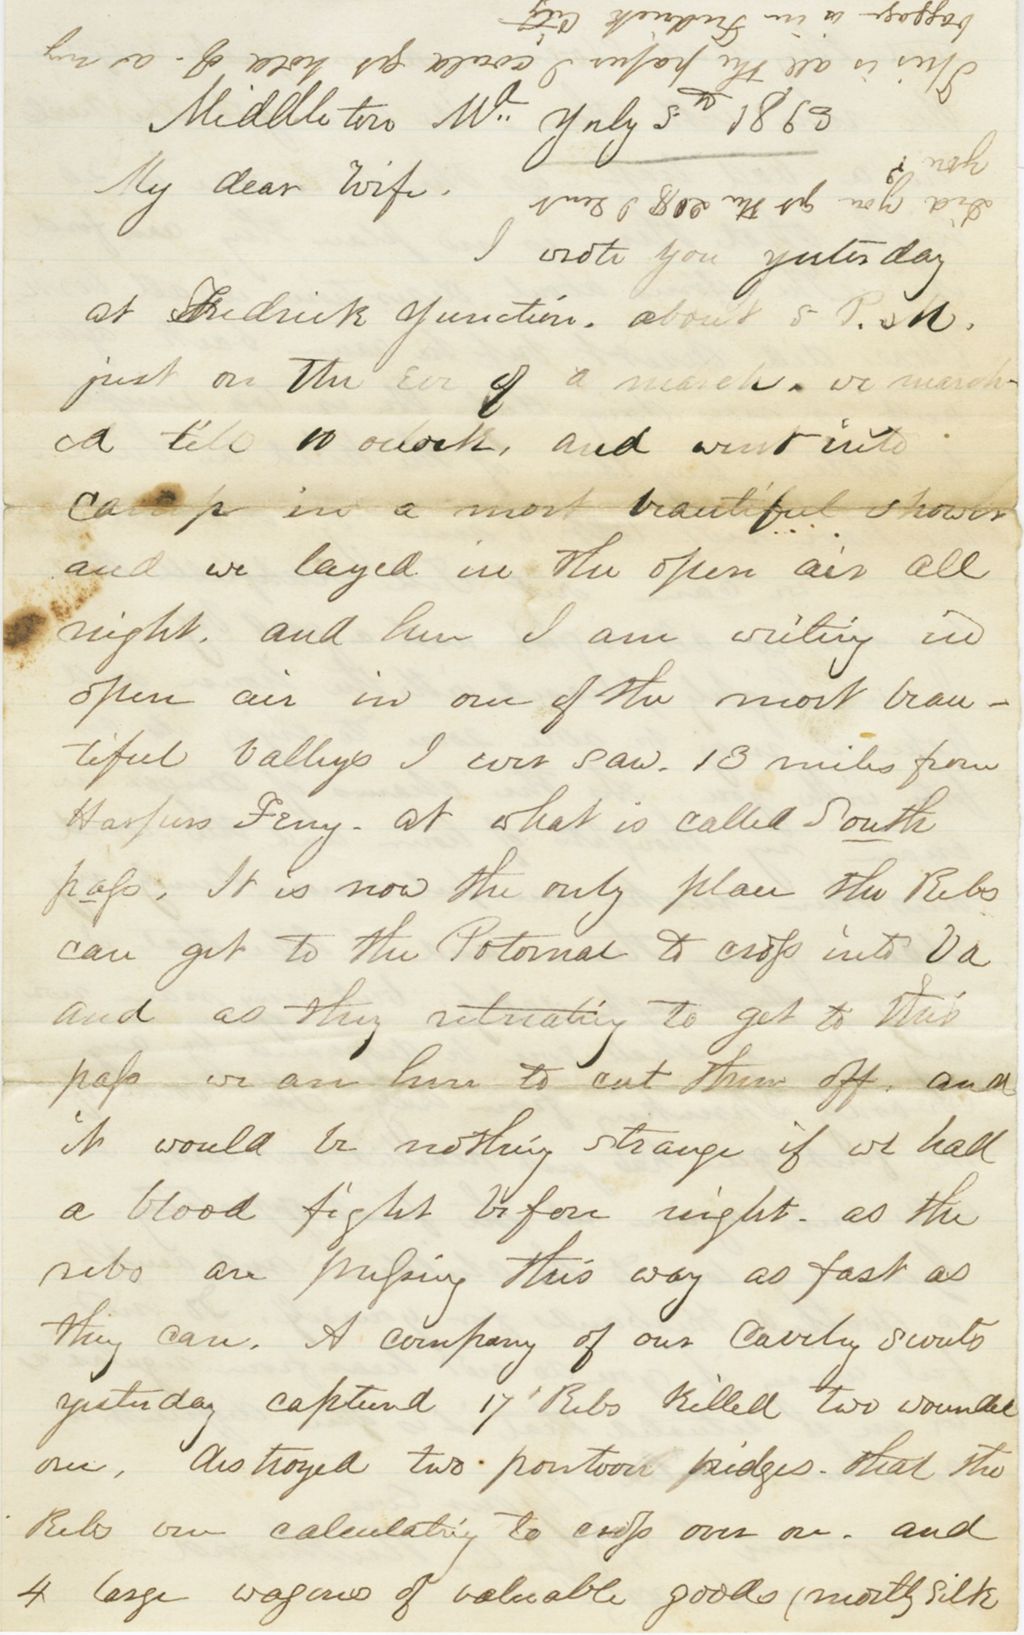 This is all the paper I could get hold of - as my
baggage is in Fredrick City
Middleton Md. July 5th 1863
My dear Wife.
Did you get the 20$ I sent
you?
I wrote you yesterday
at Fredrick Junction. about 5 P.M.
just on the Eve of a march. we march-
ed till 10 oclock, and went into
camp in a most beautiful shower
and we layed in the open air all
night. and here I am writing in
open air in one of the most beau-
tiful Valleys I ever saw. 13 miles from
Harpers Ferry. at what is called South
pass. It is now the only place the Rebs
can get to the Potomac to cross into Va
and as they retreating to get to this
pass we are here to cut them off. and
it would be nothing strange if we had
a blood fight before night. as the
rebs are pressing this way as fast as
they can. A company of our Cavelry scouts
yesterday captured 17 Rebs Killed two wounded
one, destroyed two pontoon bridges. that the
Rebs were calculating to cross over on. and
4 large wagons of valuable goods (mostly silk